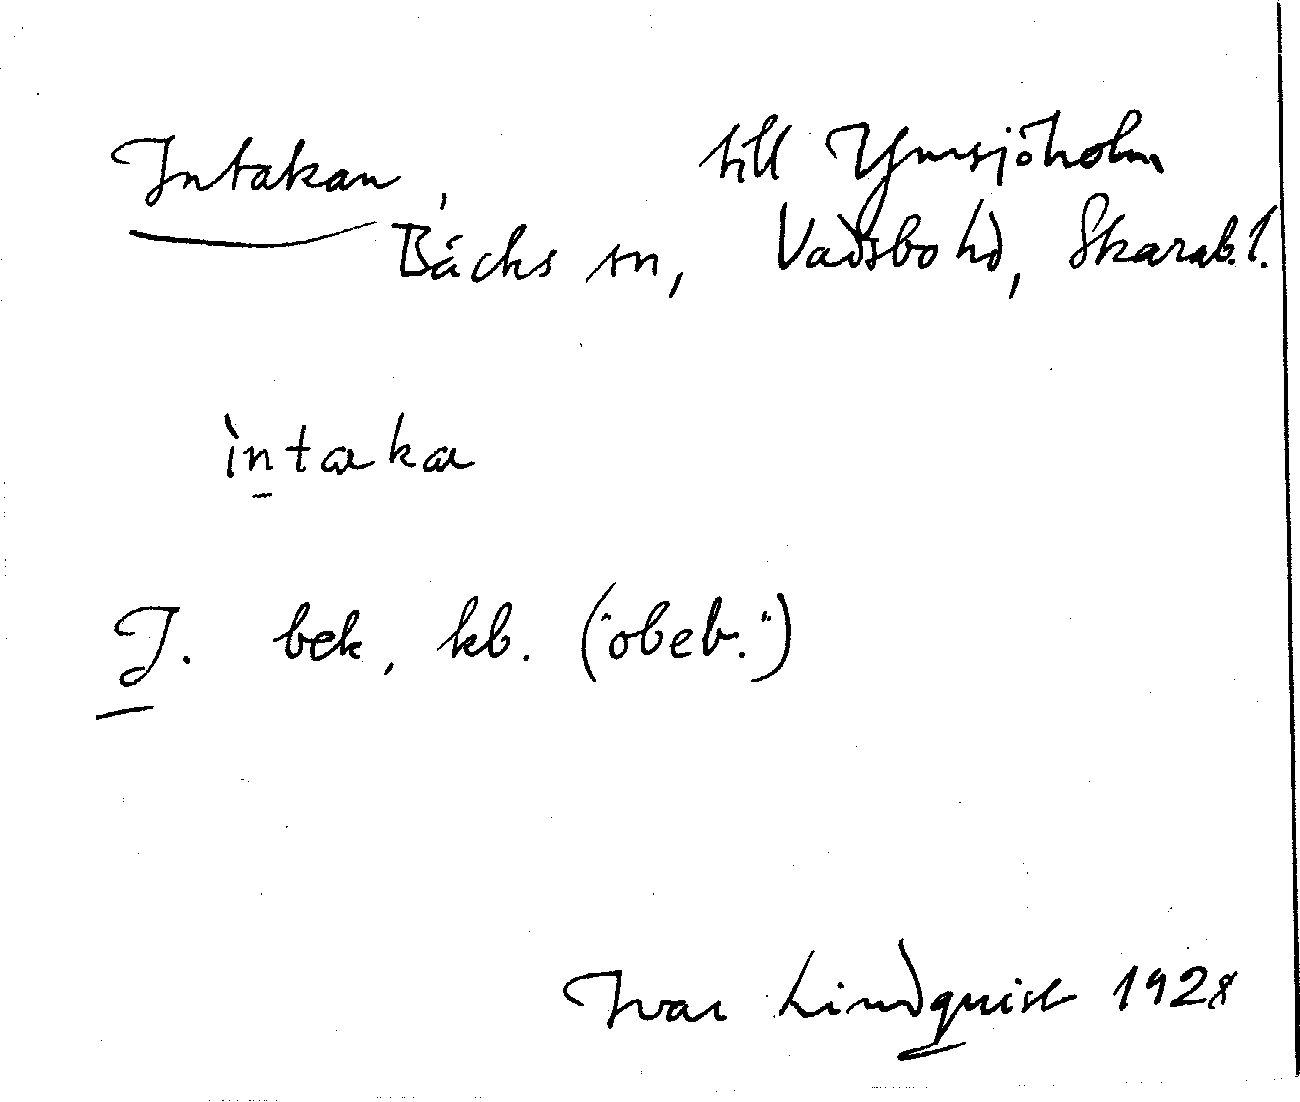 Intakan, till Ymsjöholm
Bäcks sn, Vadsbo hd, Skarab. l.
ìn̲taka
J. bek, kb. ("obeb.")
Ivar Lindquist 1928